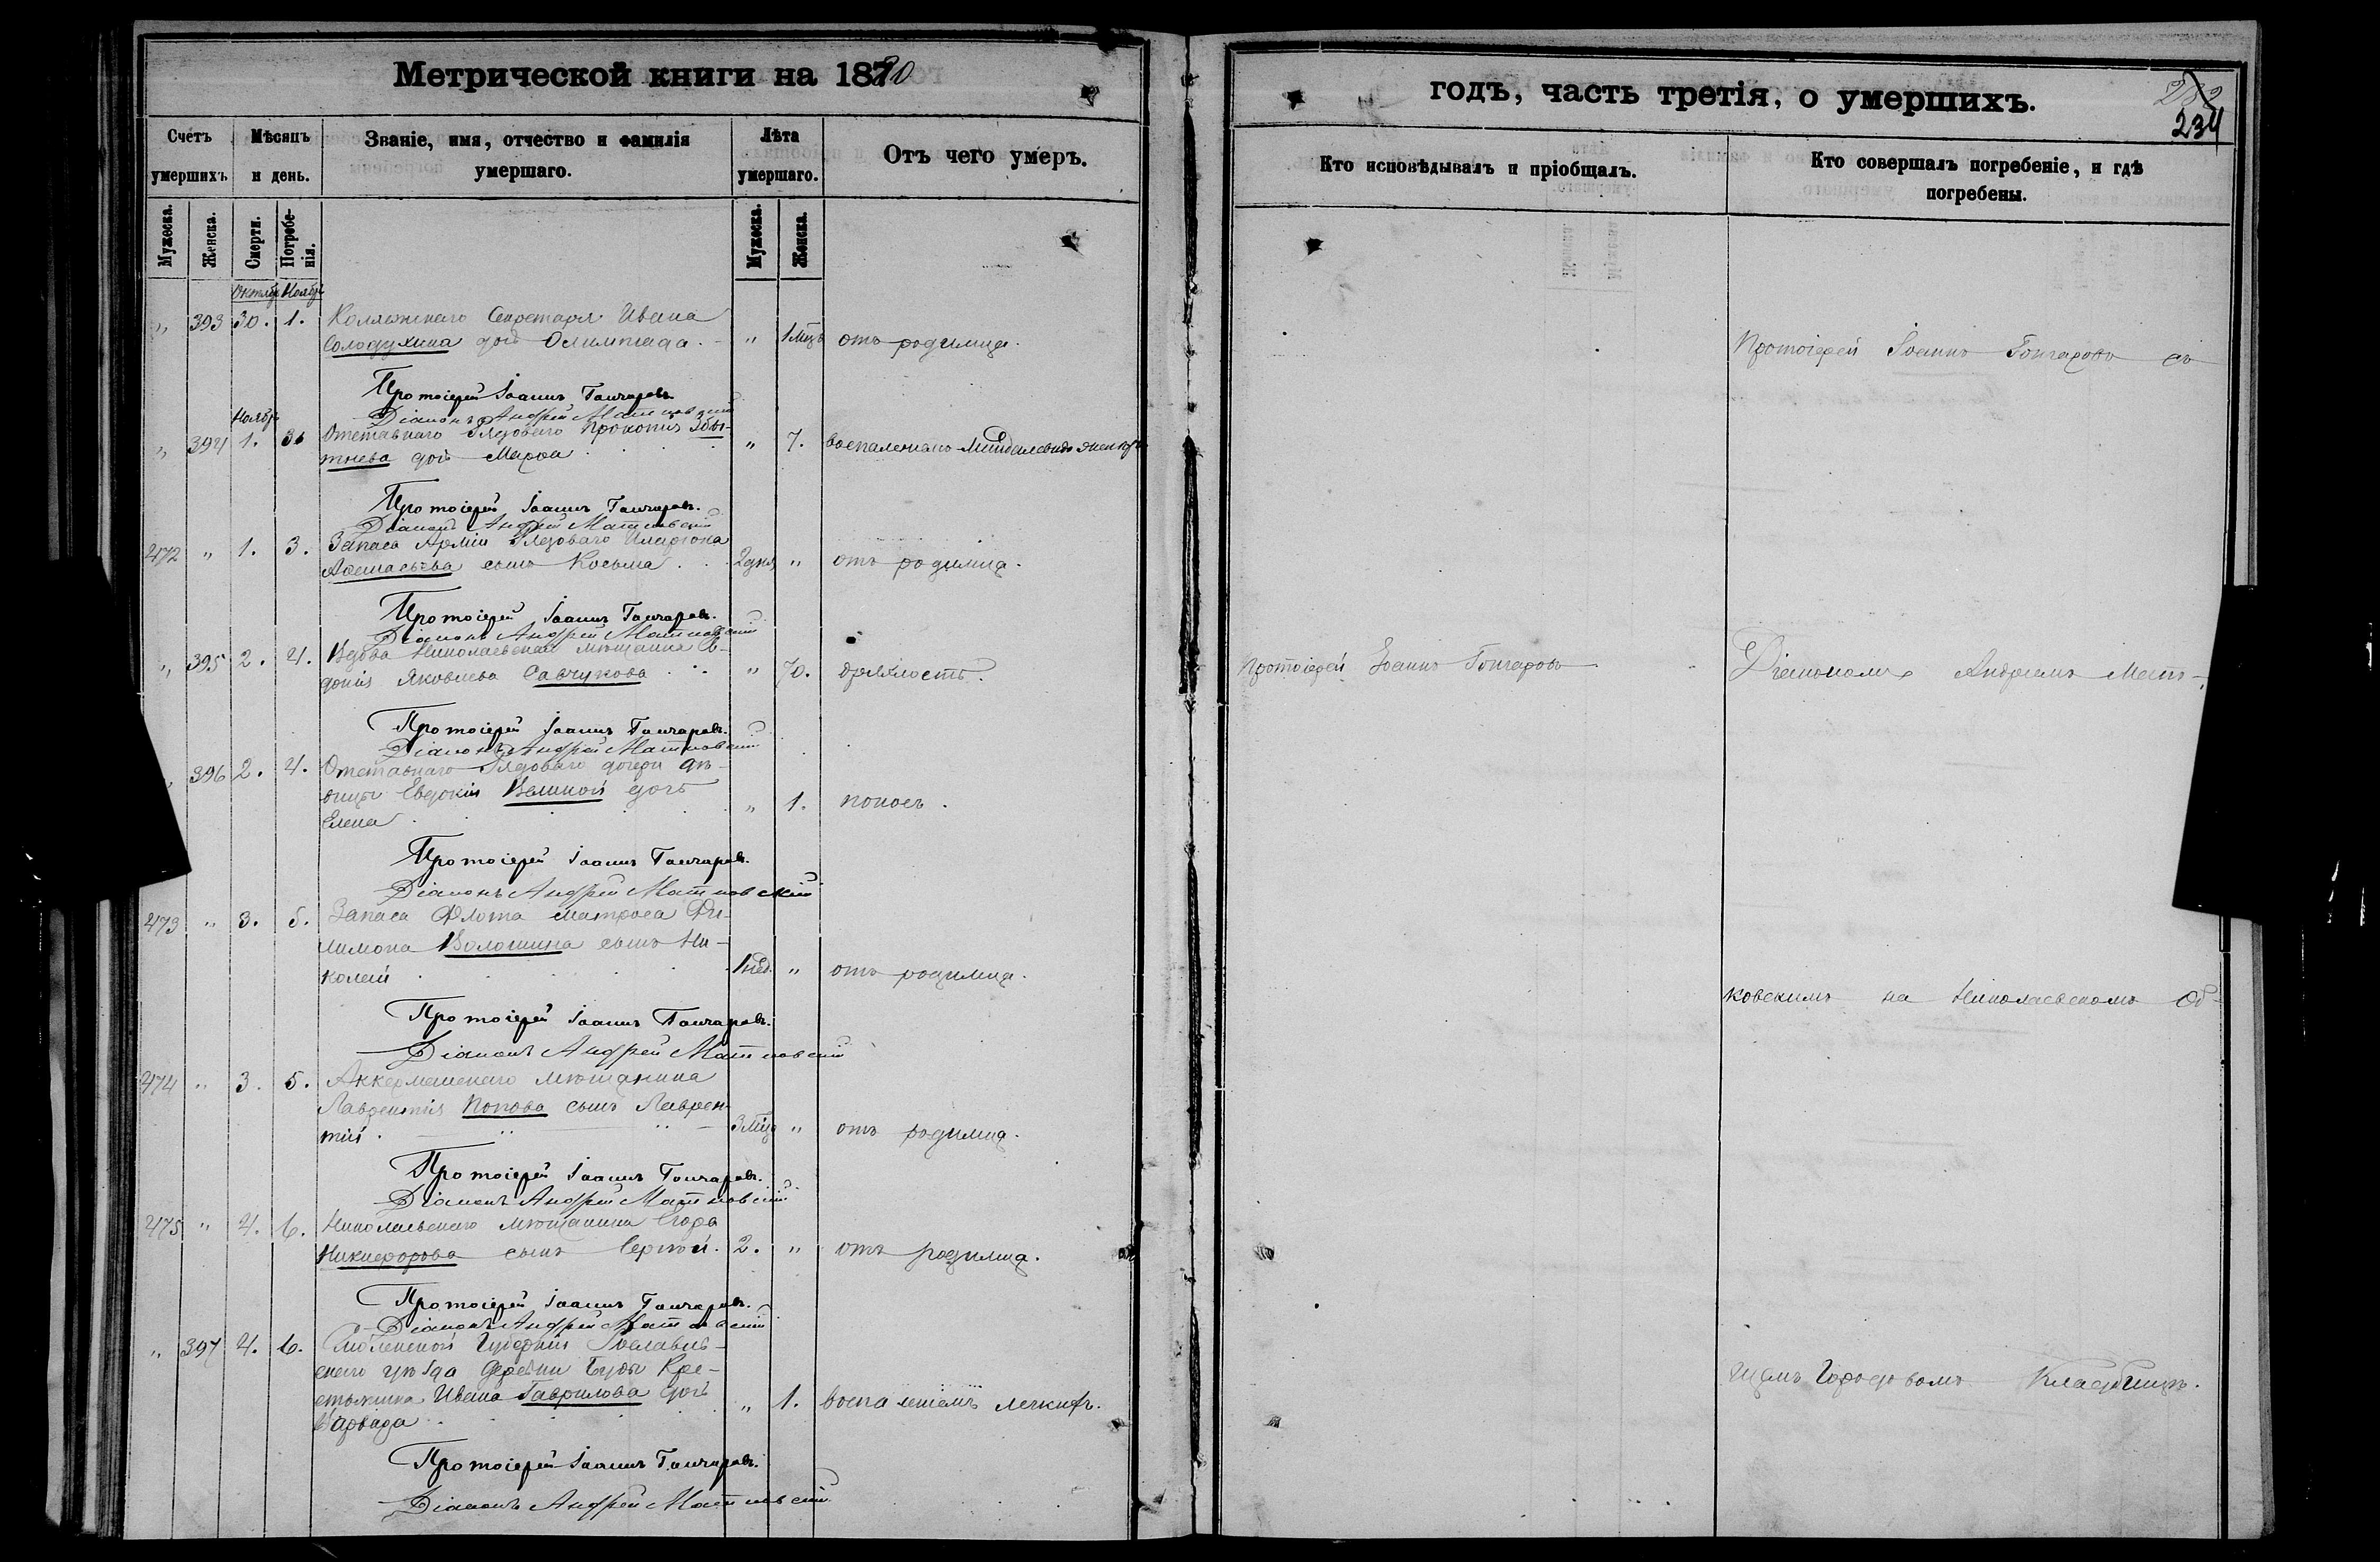 Метрической книги на 1890
Счетъ умершихъ
Мѣсяцъ и день.
Званіе, имя, отчество и фамилія умершаго.
Лѣта умершаго.
Отъ чего умеръ.
Мужеска.
Женска.
Смерти.
Погребе-
нія.
Мужеска.
Женска.
Октябр Ноябр
„ 393 30. 1. Коллежскаго Секретаря Ивана
Солодухина дочь Олимпиада. „ 1 мцъ отъ родимца.
Протоіерей Іоаннъ Гончаровъ.
Діаконъ Андрей Матковскій
Ноябр
„ 394 1. 3. Отставнаго Рядоваго Прокопія
тнева дочь Марѳа „ 7. воспаленіемъ
Протоіерей Іоаннъ Гончаровъ.
Діаконъ Андрей Матковскій
472 „ 1. 3. Запаса Арміи Рядоваго Иларіона
Аѳанасьева сынъ Косьма 2 дня „ отъ родимца.
Протоіерей Іоаннъ Гончаровъ.
Діаконъ Андрей Матковскій
„ 395 2. 4. Вдова Николаевская мѣщанка Ев-
докія Яковлева Савчукова „ 70. дряхлость.
Протоіерей Іоаннъ Гончаровъ.
Діаконъ Андрей Матковскій
„ 396 2. 4. Отставнаго Рядоваго дочери дѣ-
вицы Евдокіи Великой дочь
Елена „ 1. поносъ.
Протоіерей Іоаннъ Гончаровъ.
Діаконъ Андрей Матковскій
473 „ 3. 5. Запаса Флота матроса Фи-
лимона Волошина сынъ Ни-
колай 1 нед. „ отъ родимца.
Протоіерей Іоаннъ Гончаровъ.
Діаконъ Андрей Матковскій
474 „ 3. 5. Аккерманскаго мѣщанина
Лаврентія Попова сынъ Лаврен-
тій. 3 мцъ „ отъ родимца.
Протоіерей Іоаннъ Гончаровъ.
Діаконъ Андрей Матковскій
475 „ 4. 6. Николаевскаго мѣщанина Егора
Никифорова сынъ Сергѣй. 2. „ отъ родимца.
Протоіерей Іоаннъ Гончаровъ.
Діаконъ Андрей Матковскій
„ 397 4. 6. Смоленской Губерніи Рославль-
скаго уѣзда деревни Буды Кре-
стьянина Ивана Гаврилова дочь
Варвара „ 1. воспаленіемъ легкихъ.
Протоіерей Іоаннъ Гончаровъ.
Діаконъ Андрей Матковскій
годъ, часть третія, о умершихъ.
282
234
Кто исповѣдывалъ и пріобщалъ.
Кто совершалъ погребеніе, и гдѣ
погребены.
Протоіерей Іоаннъ Гончаровъ съ
Протоіерей Іоаннъ Гончаровъ
Діакономъ Андреемъ Мат-
ковскимъ на Николаевскомъ Об-
щемъ Городовомъ Кладбищѣ.